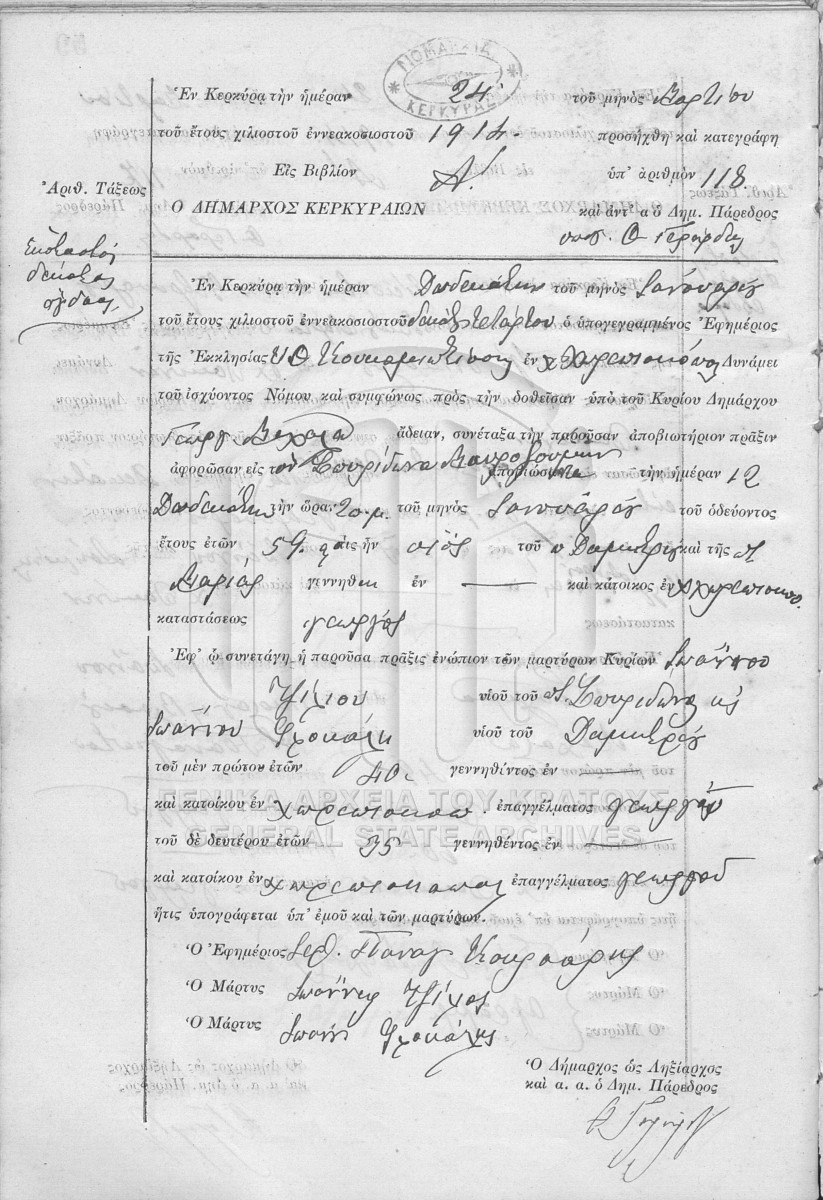 ΝΟΜΑΡΧΙΑ ΚΕΡΚΥΡΑΣ
Ἐν Κερκύρᾳ τὴν ἡμέραν 24 τοῦ μηνὸς Μαρτίου
τοῦ ἔτους χιλιοστοῦ ἐννεακοσιοστοῦ 1914 προσήχθη καὶ κατεγράφη
Εἰς Βιβλίον Α. ὑπ' ἀριθμὸν 118
Ἀριθ. Τάξεως
Ὁ ΔΗΜΑΡΧΟΣ ΚΕΡΚΥΡΑΙΩΝ καὶ ἀντ' α ὁ Δημ. Πάρεδρος
Ἑκατοστὸς
δέκατος
ὄγδοος
Ἐν Κερκύρᾳ τὴν ἡμέραν Δωδεκάτην τοῦ μηνὸς Ἰανουαρίου
τοῦ ἔτους χιλιοστοῦ ἐννεακοσιοστοῦ δεκάτου τετάρτου ὁ ὑπογεγραμμένος Ἐφημέριος
τῆς Ἐκκλησίας Υ Θ ἐν Χωρεπισκόπους Δυνάμει
τοῦ ἰσχύοντος Νόμου καὶ συμφώνως πρὸς τὴν δοθεῖσαν ὑπὸ τοῦ Κυρίου Δημάρχου
Γεωργ ἄδειαν, συνέταξα τὴν παροῦσαν ἀποβιωτήριον πρᾶξιν
ἀφορῶσαν εἰς τὸν Σπυρίδωνα ἀποβιώσαντα τὴν ἡμέραν 12
Δωδεκάτην τὴν ὥραν 2 π.μ. τοῦ μηνὸς Ἰανουαρίου τοῦ ὁδεύοντος
ἔτους ἐτῶν 59 ὅστις ἦν υἱὸς τοῦ π Δημητρίου καὶ τῆς π
Μαρίας γεννηθεὶς ἐν — καὶ κάτοικος ἐν Χωρεπισκόπο.
καταστάσεως γεωργὸς
Ἐφ' ᾧ συνετάγη ἡ παροῦσα πρᾶξις ἐνώπιον τῶν μαρτύρων Κυρίων Ἰωάννου
Τζίλιου υἱοῦ τοῦ π. Σπυρίδωνος κς
Ἰωάννου υἱοῦ τοῦ Δημητρίου
τοῦ μὲν πρώτου ἐτῶν 40 γεννηθέντος ἐν —
καὶ κατοίκου ἐν χωρεπισκοπ. ἐπαγγέλματος γεωργοῦ
ΓΕΝΙΚΑ ΑΡΧΕΙΑ ΤΟΥ ΚΡΑΤΟΥΣ
GENERAL STATE ARCHIVES
τοῦ δὲ δευτέρου ἐτῶν 35 γεννηθέντος ἐν —
καὶ κατοίκου ἐν χωρεπισκόπους ἐπαγγέλματος γεωργοῦ
ἥτις ὑπογράφεται ὑπ' ἐμοῦ καὶ τῶν μαρτύρων.
Ὁ Ἐφημέριος Παναγ
Ὁ Μάρτυς Ἰωάννης
Ὁ Μάρτυς Ἰωάν
Ὁ Δήμαρχος ὡς Ληξίαρχος
καὶ α. α. ὁ Δημ. Πάρεδρος